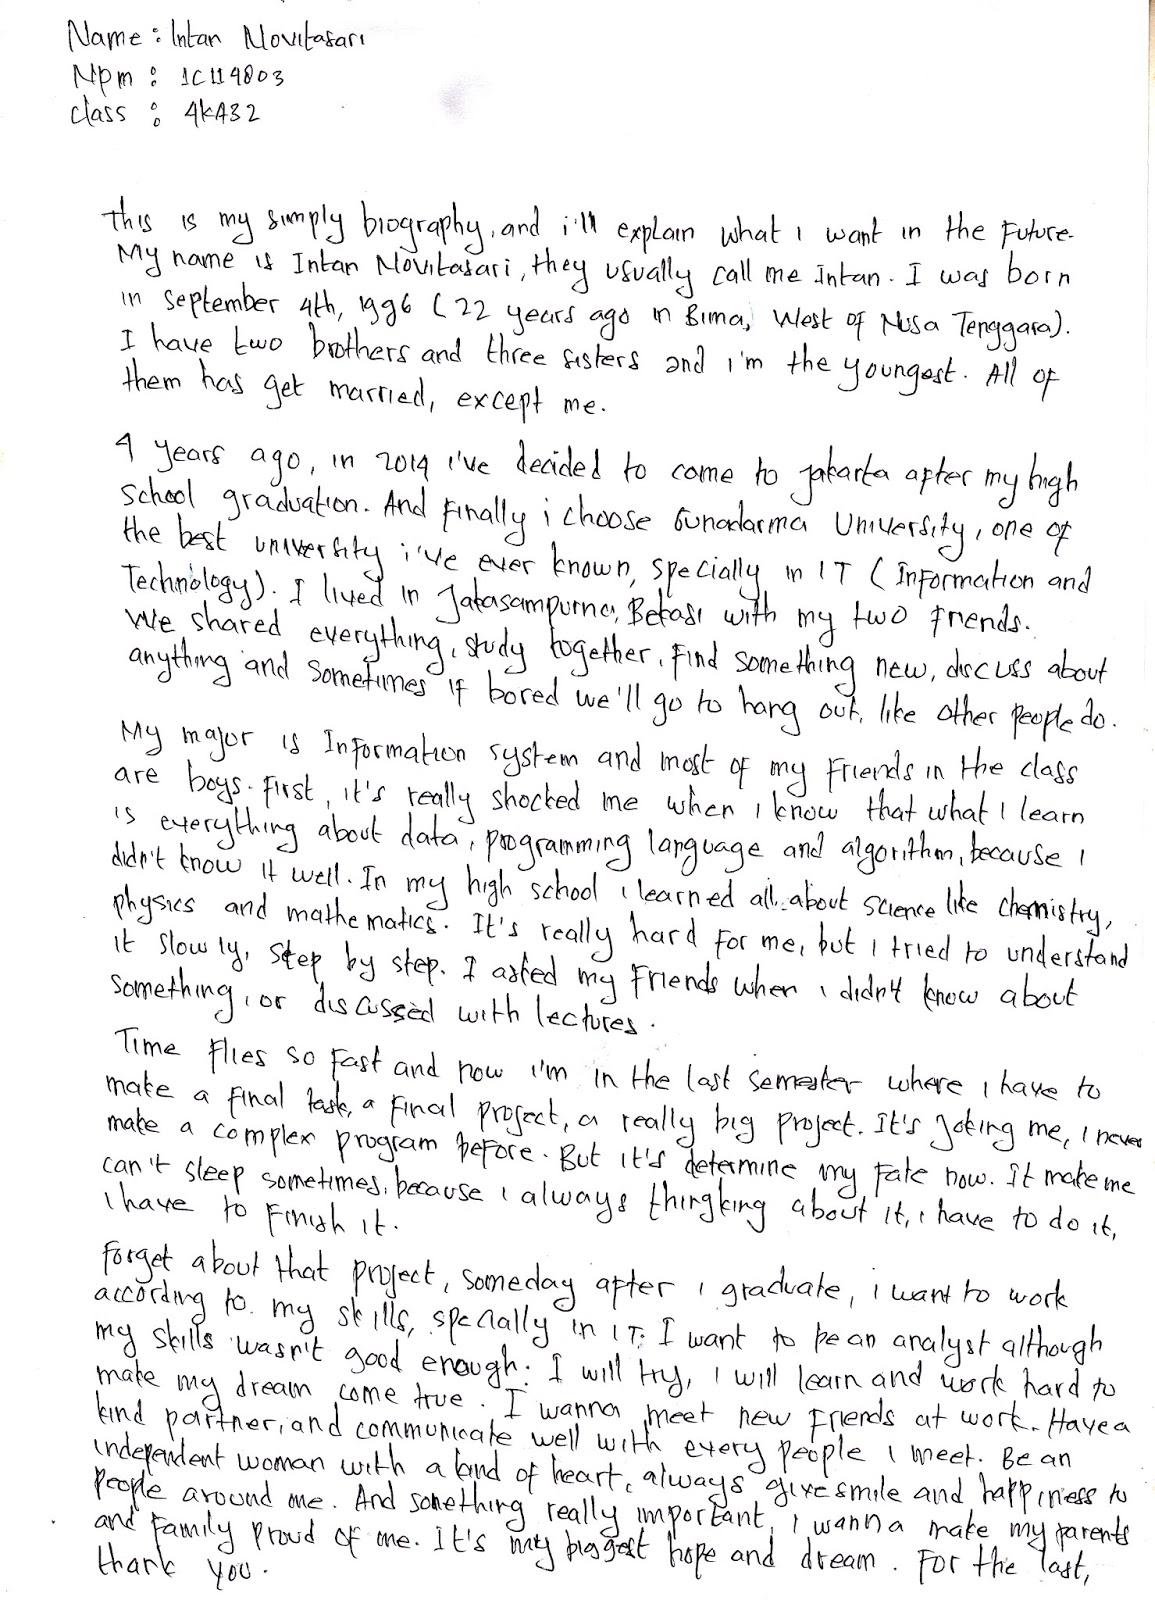 Name : Intan Novitasari
Npm : 1C114803
class : 4KA32
This is my simply biography, and i'll explain what i want in the future.
My name is Intan Novitasari, they usually call me Intan. I was born
in september 4th, 1996 (22 years ago in Bima, West of Nusa Tenggara).
I have two brothers and three sisters and i'm the youngest. All of
them has get married, except me.
4 years ago, in 2014 i've decided to come to jakarta after my high
school graduation. And finally i choose Gunadarma University, one of
the best university i've ever known, specially in IT (Information and
Technology). I lived in Jatasampurna, Bekasi with my two friends.
We shared everything, study together, find something new, discuss about
anything and sometimes if bored we'll go to hang out, like other people do.
My major is Information system and most of my friends in the class
are boys. First, it's really shocked me when i know that what i learn
is everything about data, programming language and algorithm, because i
didn't know it well. In my high school i learned all about science like chemistry,
physics and mathematics. It's really hard for me, but i tried to understand
it slowly, step by step. I asked my friends when i didn't know about
something, or discussed with lectures.
Time flies so fast and now i'm in the last semester where i have to
make a final task, a final project, a really big project. It's joking me, i never
make a complex program before. But it's determine my fate now. It make me
can't sleep sometimes, because i always thingking about it, i have to do it,
i have to finish it.
Forget about that project, someday after i graduate, i want to work
according to my skills, specially in IT. I want to be an analyst although
my skills wasn't good enough. I will try, i will learn and work hard to
make my dream come true. I wanna meet new friends at work. Have a
kind partner, and communicate well with every people i meet. Be an
independent woman with a kind of heart, always give smile and happiness to
people around me. And something really important, i wanna make my parents
and family proud of me. It's my biggest hope and dream. For the last,
thank you.